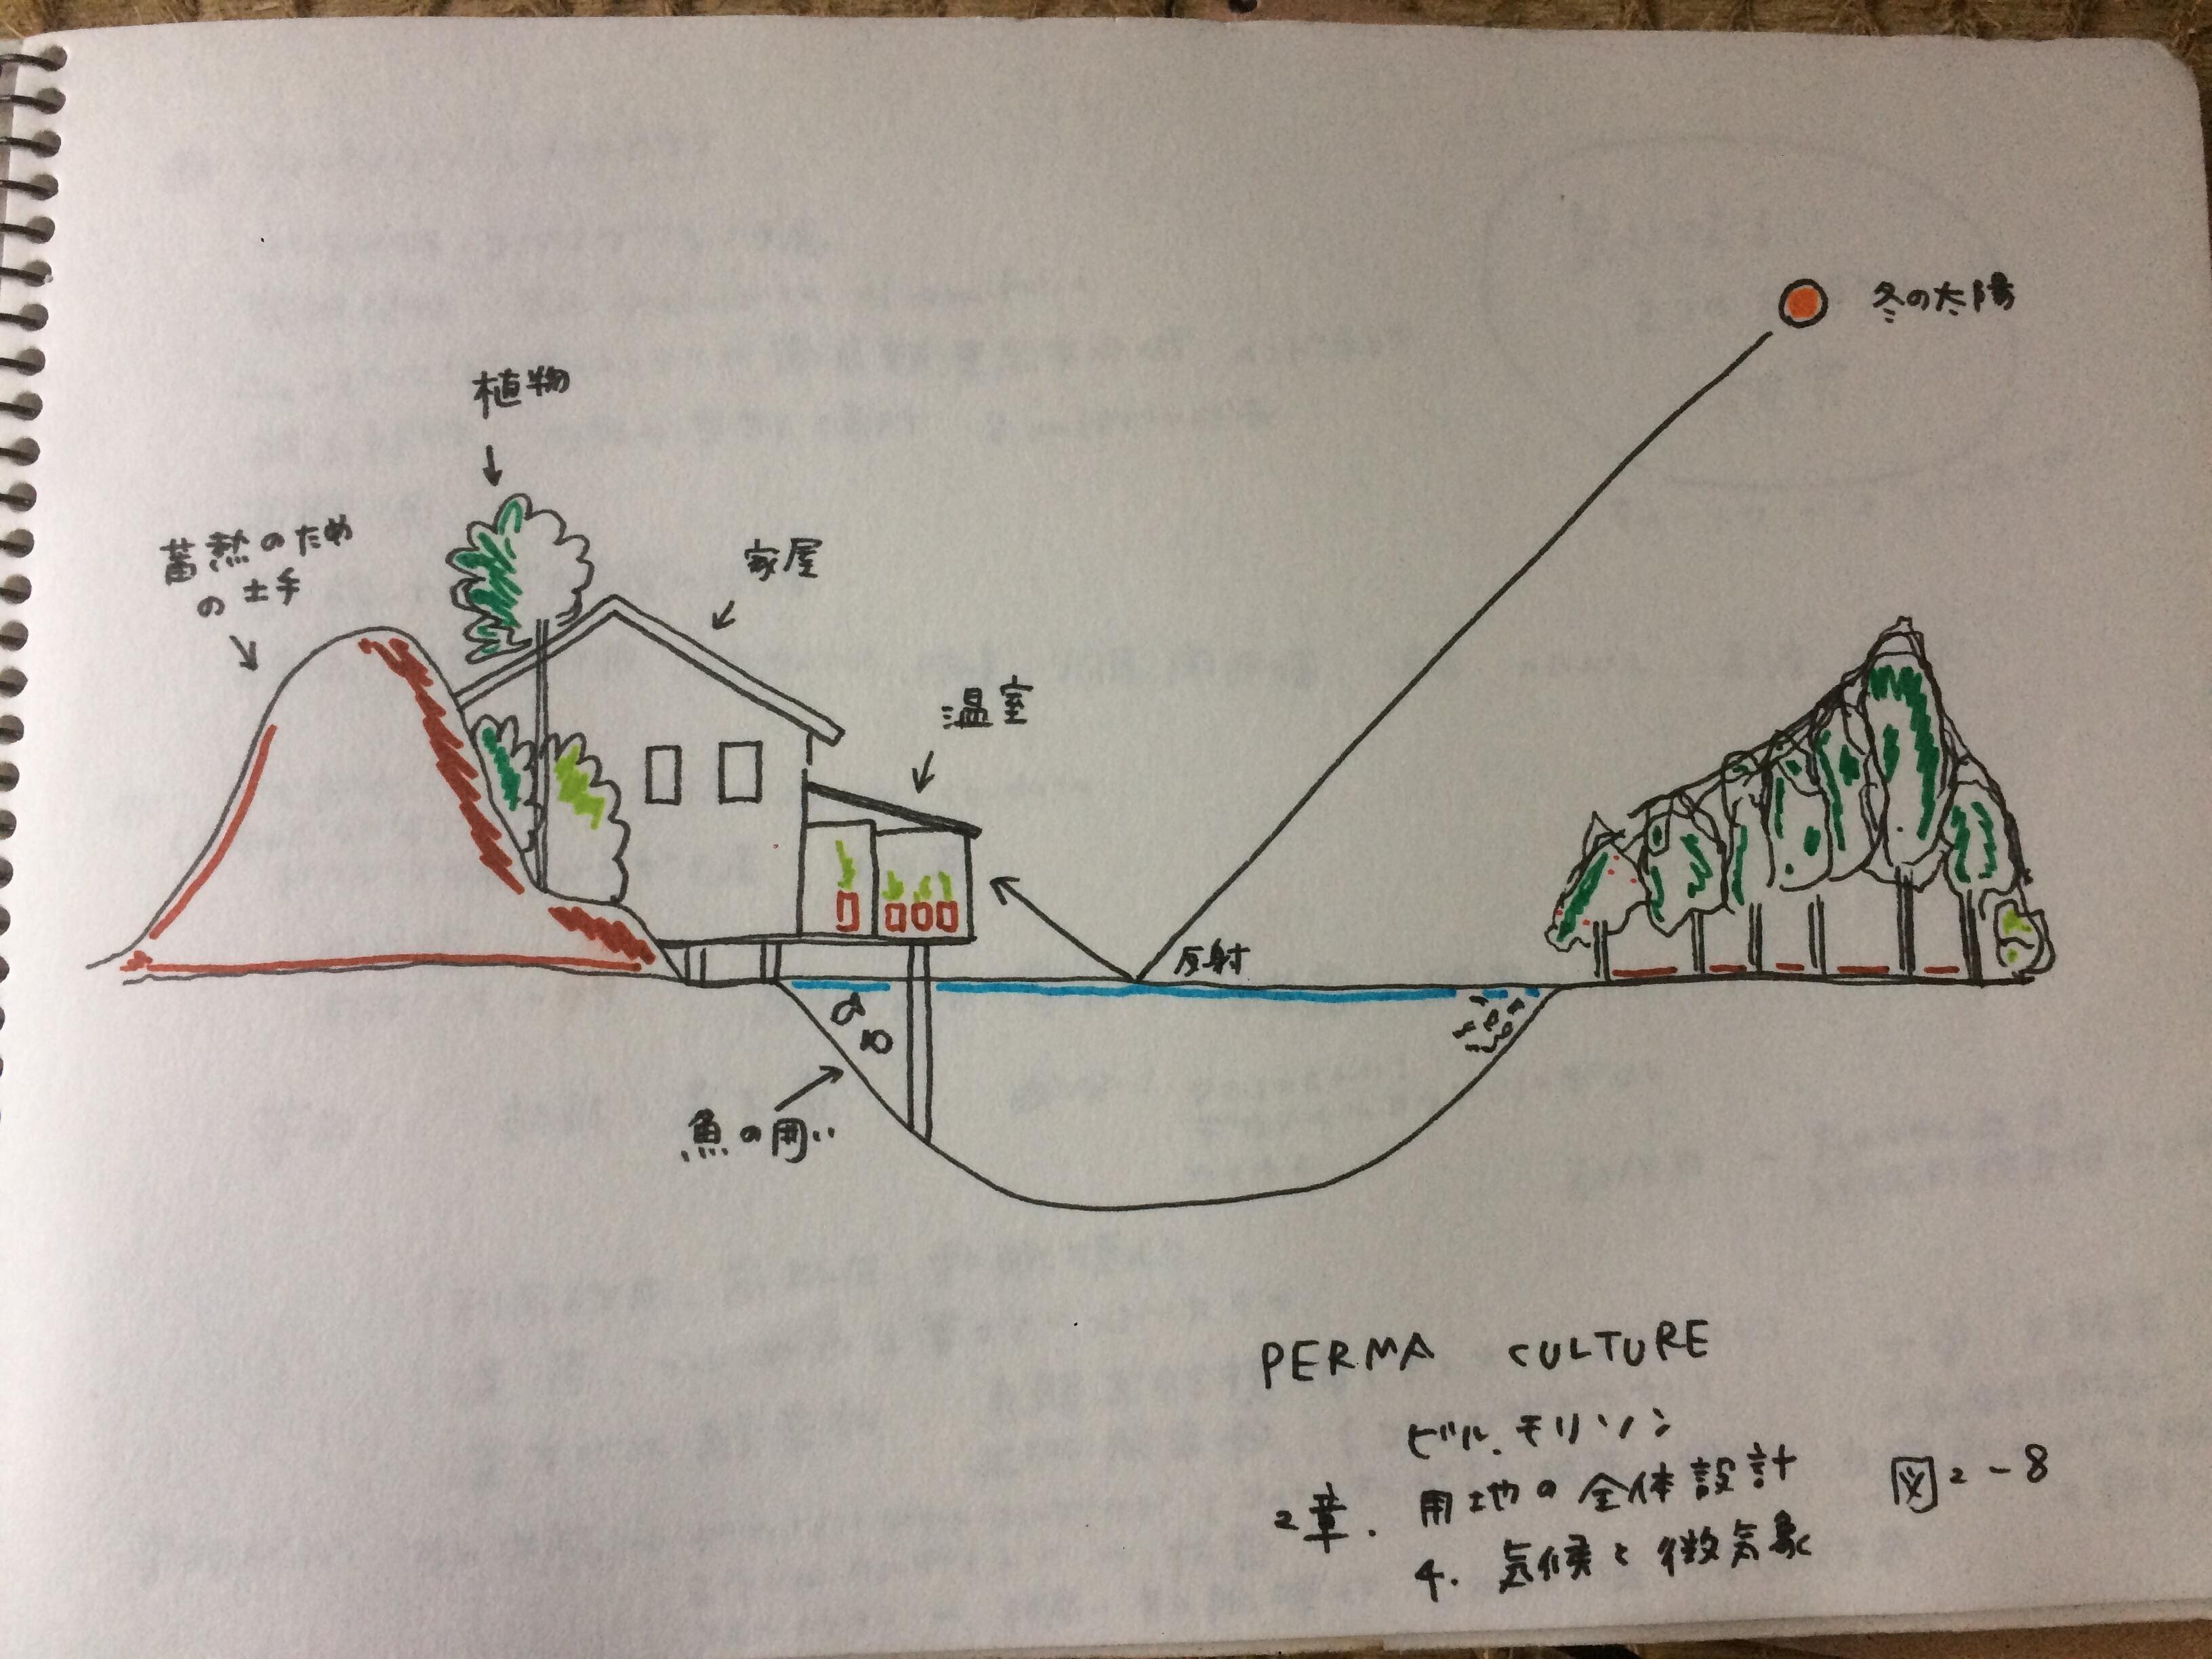 冬の太陽
植物
蓄熱のため
の土手
家屋
温室
反射
魚の囲い
PERMA CULTURE
ビル.モリソン
2章. 用地の全体設計 図2-8
4. 気候と微気象